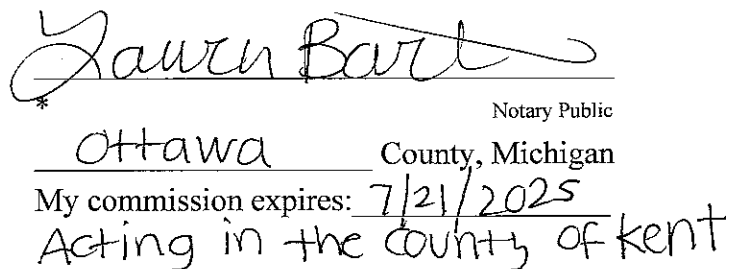 Lauren Bart
*
Notary Public
Ottawa County, Michigan
My commission expires: 7/21/2025
Acting in the county of Kent